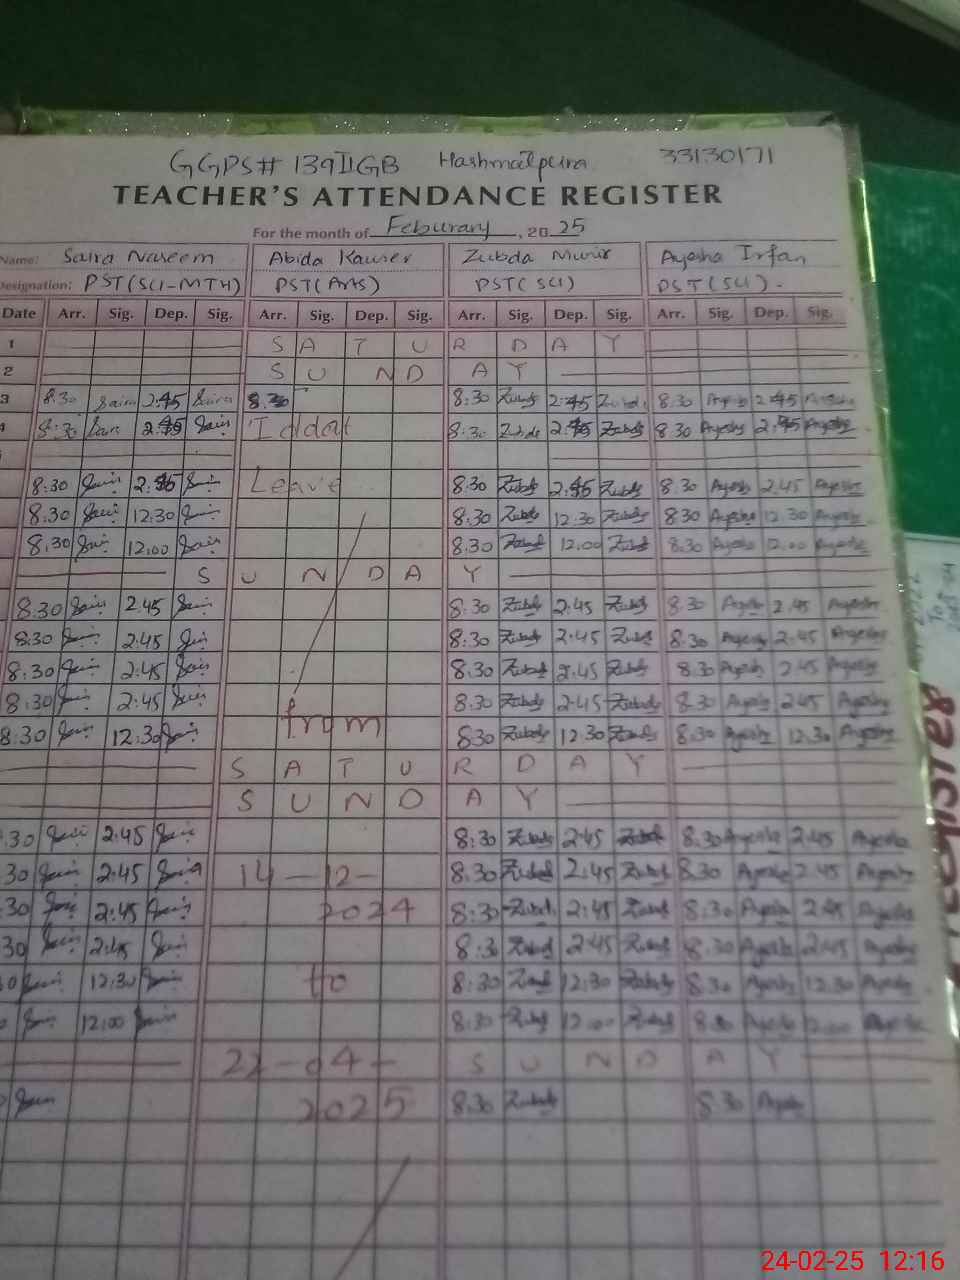 GGPS# 139IIGB Hashmatpura 33130171
TEACHER'S ATTENDANCE REGISTER
For the month of Feburary, 2025
Name: Saira Naseem Abida Kauser Zubda Munir Ayesha Irfan
Designation: PST(SCI-MTH) PST(Arts) PST(SCI) PST(SCI).
Date Arr. Sig. Dep. Sig. Arr. Sig. Dep. Sig. Arr. Sig. Dep. Sig. Arr. Sig. Dep. Sig.
1 S A T U R D A Y
2 S U N D A Y
3 8.30 Saira 2.45 Saira 8.30 8.30 Zubda 2.45 Zubda 8.30 Ayesha 2.45
4 8.30 2.45 Iddat 8.30 Zubda 2.45 Zubda 8.30 Ayesha 2.45 Ayesha
8.30 2.45 Leave 8.30 Zubda 2.45 Zubda 8.30 Ayesha 2.45 Ayesha
8.30 12.30 8.30 Zubda 12.30 Zubda 8.30 Ayesha 12.30 Ayesha
8.30 12.00 8.30 Zubda 12.00 Zubda 8.30 Ayesha 12.00 Ayesha
S U N D A Y
8.30 2.45 8.30 Zubda 2.45 Zubda 8.30 Ayesha 2.45 Ayesha
8.30 2.45 8.30 Zubda 2.45 Zubda 8.30 Ayesha 2.45 Ayesha
8.30 2.45 8.30 Zubda 2.45 Zubda 8.30 Ayesha 2.45 Ayesha
8.30 2.45 8.30 Zubda 2.45 Zubda 8.30 Ayesha 2.45 Ayesha
8.30 12.30 from 8.30 Zubda 12.30 Zubda 8.30 Ayesha 12.30 Ayesha
S A T U R D A Y
S U N D A Y
.30 2.45 8.30 Zubda 2.45 Zubda 8.30 Ayesha 2.45 Ayesha
30 2.45 14-12- 8.30 Zubda 2.45 Zubda 8.30 Ayesha 2.45 Ayesha
30 2.45 2024 8.30 Zubda 2.45 Zubda 8.30 Ayesha 2.45 Ayesha
30 2.45 8.30 Zubda 2.45 Zubda 8.30 Ayesha 2.45 Ayesha
0 12.30 to 8.30 Zubda 12.30 Zubda 8.30 Ayesha 12.30 Ayesha
12.00 8.30 Zubda 12.00 Zubda 8.30 Ayesha 12.00 Ayesha
22-04- S U N D A Y
2025 8.30 Zubda 8.30 Ayesha
Register
24-02-25 12:16